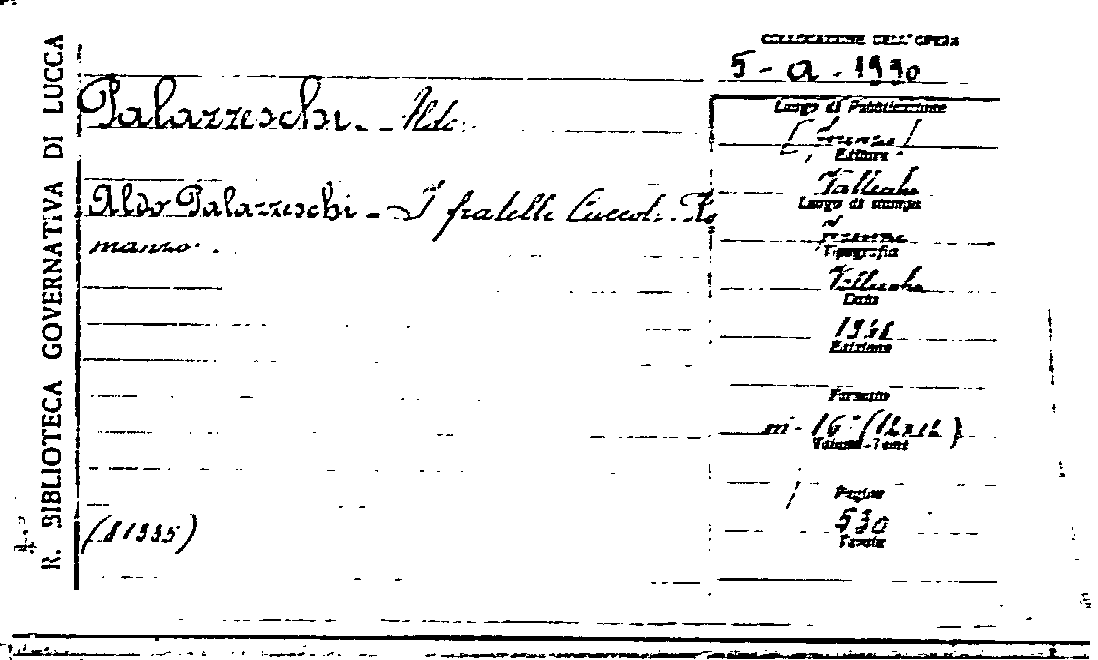 R. BIBLIOTECA GOVERNATIVA DI LUCCA
COLLOCAZIONE DELL'OPERA
5 - a - 1990
Palazzeschi - Aldo
Luogo di Pubblicazione
Editore
Aldo Palazzeschi - I fratelli Cuccoli. Ro
manzo.
Vallecchi
Luogo di stampa
Tipografia
Vallecchi
Data
Edizione
Formato
in - 16° (12x12)
Volume - Tomi
Pagine
530
Tavole